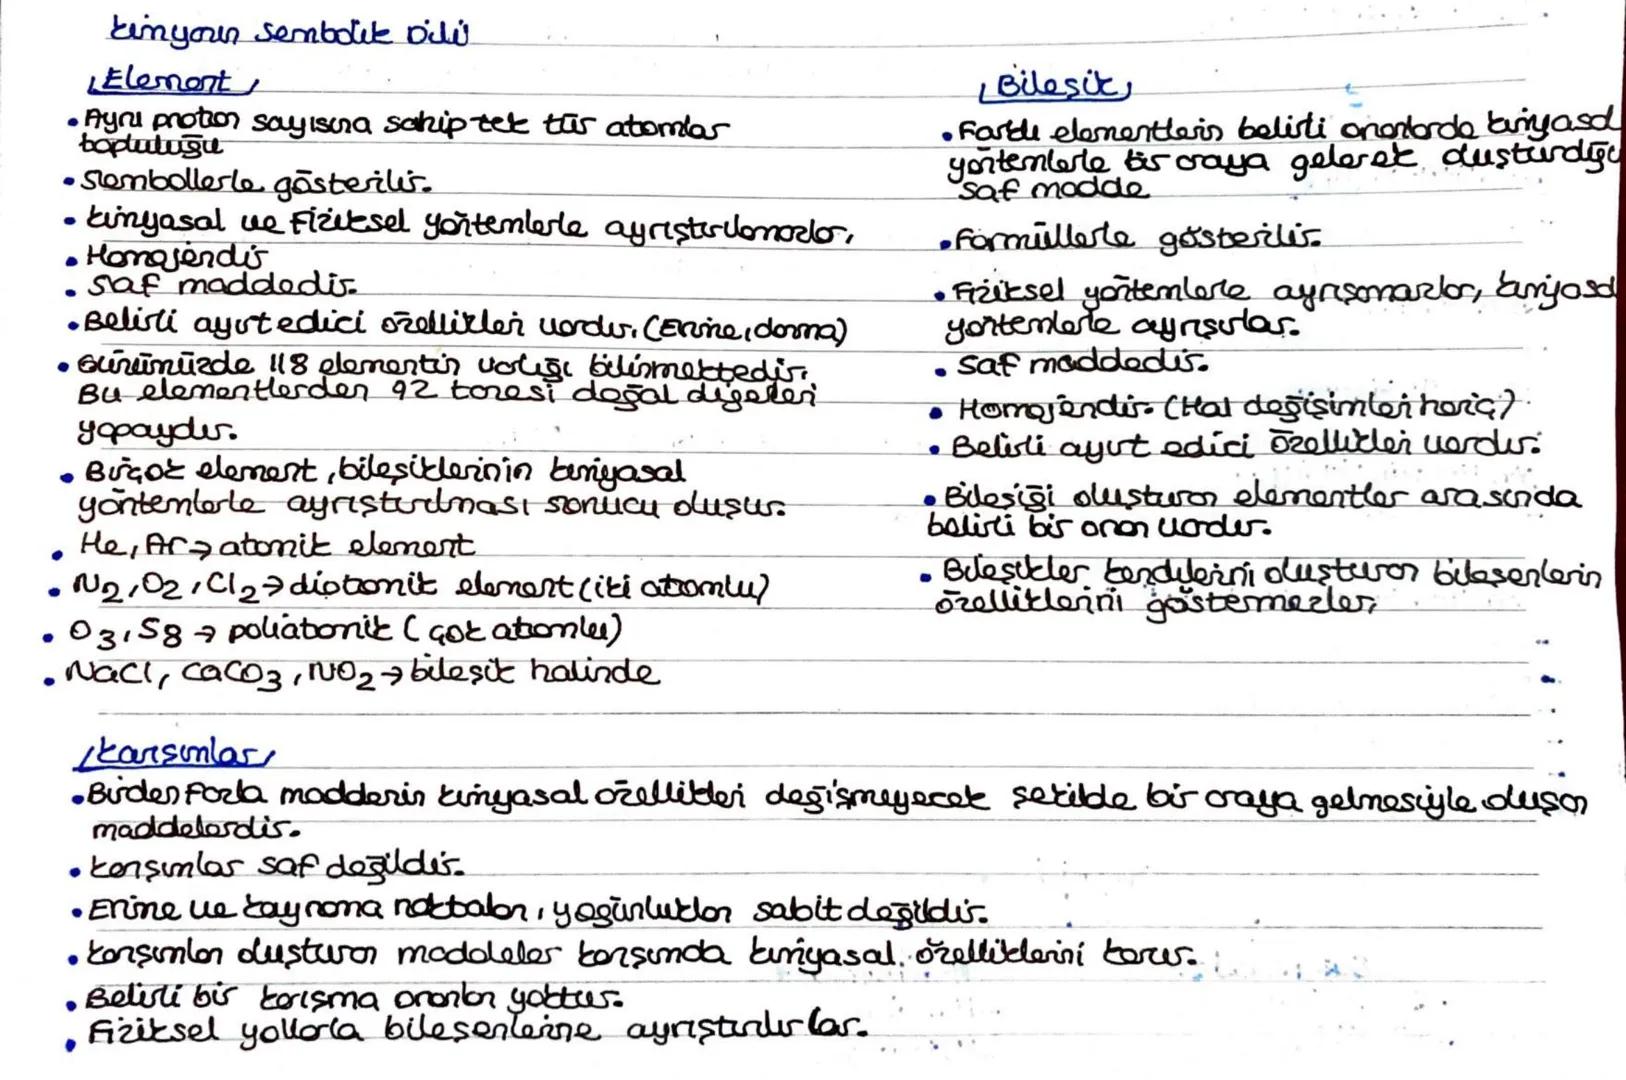 Kimyanın Sembolik Dili
Element
• Aynı proton sayısına sahip tek tür atomlar
topluluğu
• Sembollerle gösterilir.
• Kimyasal ve Fiziksel yöntemlerle ayrıştırılamazlar.
• Homojendir
• Saf maddedir.
• Belirli ayırt edici özellikleri vardır. (Erime, donma)
• Günümüzde 118 elementin varlığı bilinmektedir.
Bu elementlerden 92 tanesi doğal diğerleri
yapaydır.
• Birçok element, bileşiklerinin kimyasal
yöntemlerle ayrıştırılması sonucu oluşur.
• He, Ar → atomik element
• N2, O2, Cl2 → diatomik element (iki atomlu)
• O3, S8 → poliatomik (çok atomlu)
• NaCl, CaCO3, NO2 → bileşik halinde
Bileşik
• Farklı elementlerin belirli oranlarda kimyasal
yöntemlerle bir araya gelerek oluşturduğu
saf madde
• Formüllerle gösterilir.
• Fiziksel yöntemlerle ayrışamazlar, kimyasal
yöntemlerle ayrışırlar.
• Saf maddedir.
• Homojendir. (Hal değişimleri hariç)
• Belirli ayırt edici özellikleri vardır.
• Bileşiği oluşturan elementler arasında
belirli bir oran vardır.
• Bileşikler kendilerini oluşturan bileşenlerin
özelliklerini göstermezler.
Karışımlar
• Birden fazla maddenin kimyasal özellikleri değişmeyecek şekilde bir araya gelmesiyle oluşan
maddelerdir.
• Karışımlar saf değildir.
• Erime ve kaynama noktaları, yoğunlukları sabit değildir.
• Karışımları oluşturan maddeler karışımda kimyasal özelliklerini korur.
• Belirli bir karışma oranları yoktur.
• Fiziksel yollarla bileşenlerine ayrıştırılırlar.